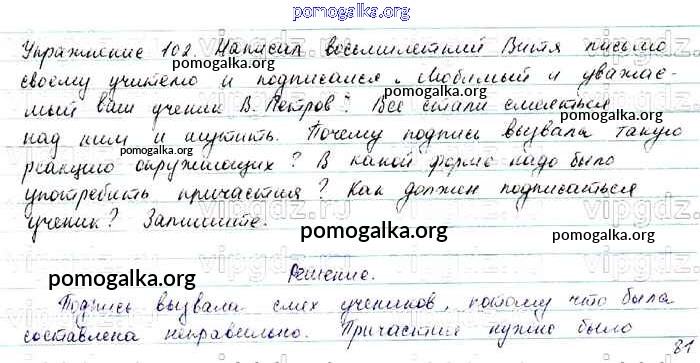 pomogalka.org
Упражнение 102. Написал восьмилетний Витя письмо
своему учителю и подписался "Любимый и уважае-
мый ваш ученик В. Петров". Все стали смеяться
над ним и шутить. Почему подпись вызвала такую
реакцию окружающих? В какой форме надо было
употребить причастия? Как должен подписаться
ученик? Запишите.
Решение.
Подпись вызвала смех учеников, потому что была
составлена неправильно. Причастия нужно было
31
pomogalka.org
pomogalka.org
pomogalka.org
pomogalka.org
pomogalka.org
pomogalka.org
pomogalka.org
pomogalka.org
vipgdz.ru
vipgdz.ru
vipgdz.ru